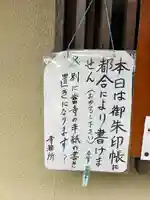 本日は御朱印帳に
都合により書けま
せん(お分かり下さい)
又、別に当寺の手紙の書き
置きになります。
寺務所